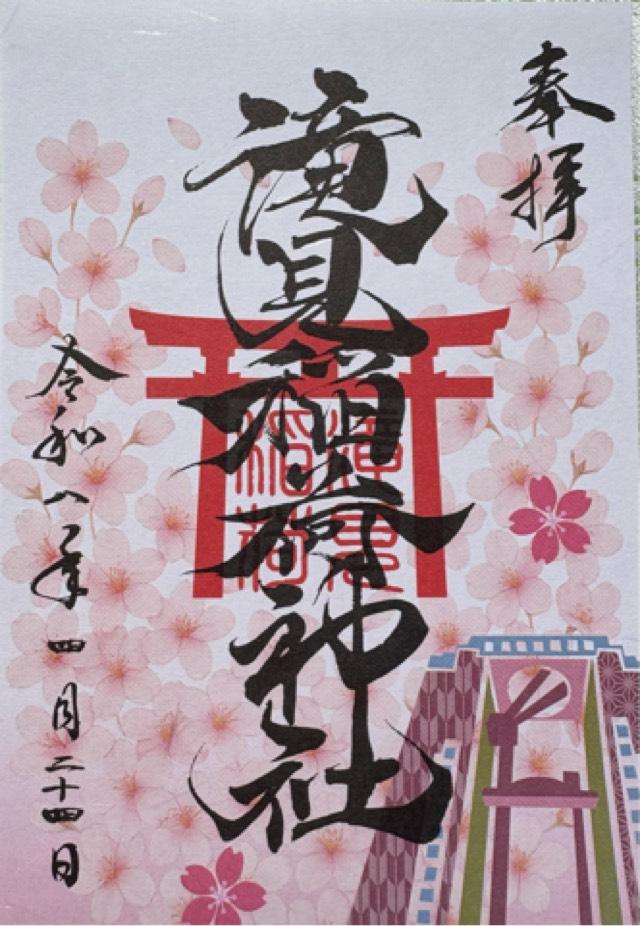 奉拝
見稲荷神社
令和八年四月二十四日